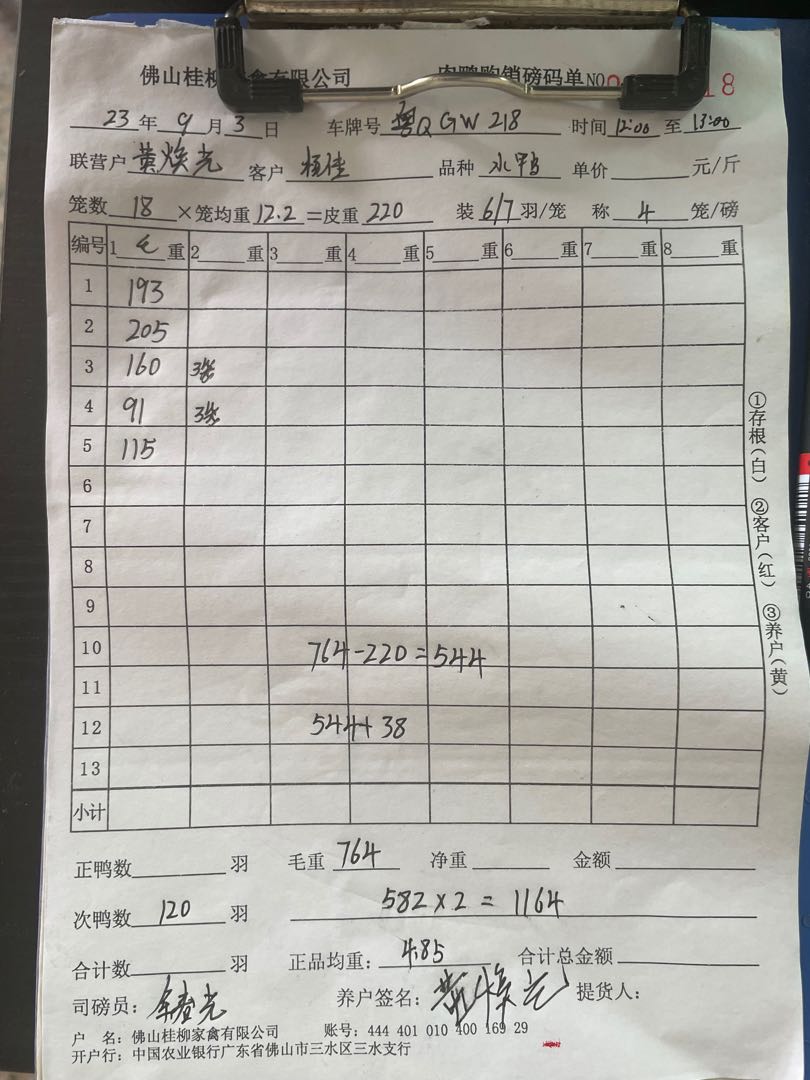 佛山桂柳家禽有限公司 肉鸭购销磅码单NO 18
23年9月3日 车牌号 粤Q GW 218 时间 12:00 至 13:00
联营户 黄焕光 客户 杨佳 品种 水鸭 单价 元/斤
笼数 18 ×笼均重 12.2 =皮重 220 装 6/7 羽/笼 称 4 笼/磅
编号 1 毛 重 2 重 3 重 4 重 5 重 6 重 7 重 8 重
1 193
2 205
3 160 3笼
4 91 3笼
5 115
6
7
8
9
10 764-220=544
11
12 544+38
13
小计
①存根(白) ②客户(红) ③养户(黄)
正鸭数 羽 毛重 764 净重 金额
次鸭数 120 羽 582×2=1164
合计数 羽 正品均重: 4.85 合计总金额
司磅员: 养户签名: 黄焕光 提货人:
户 名: 佛山桂柳家禽有限公司 账号: 444 401 010 400 169 29
开户行: 中国农业银行广东省佛山市三水区三水支行